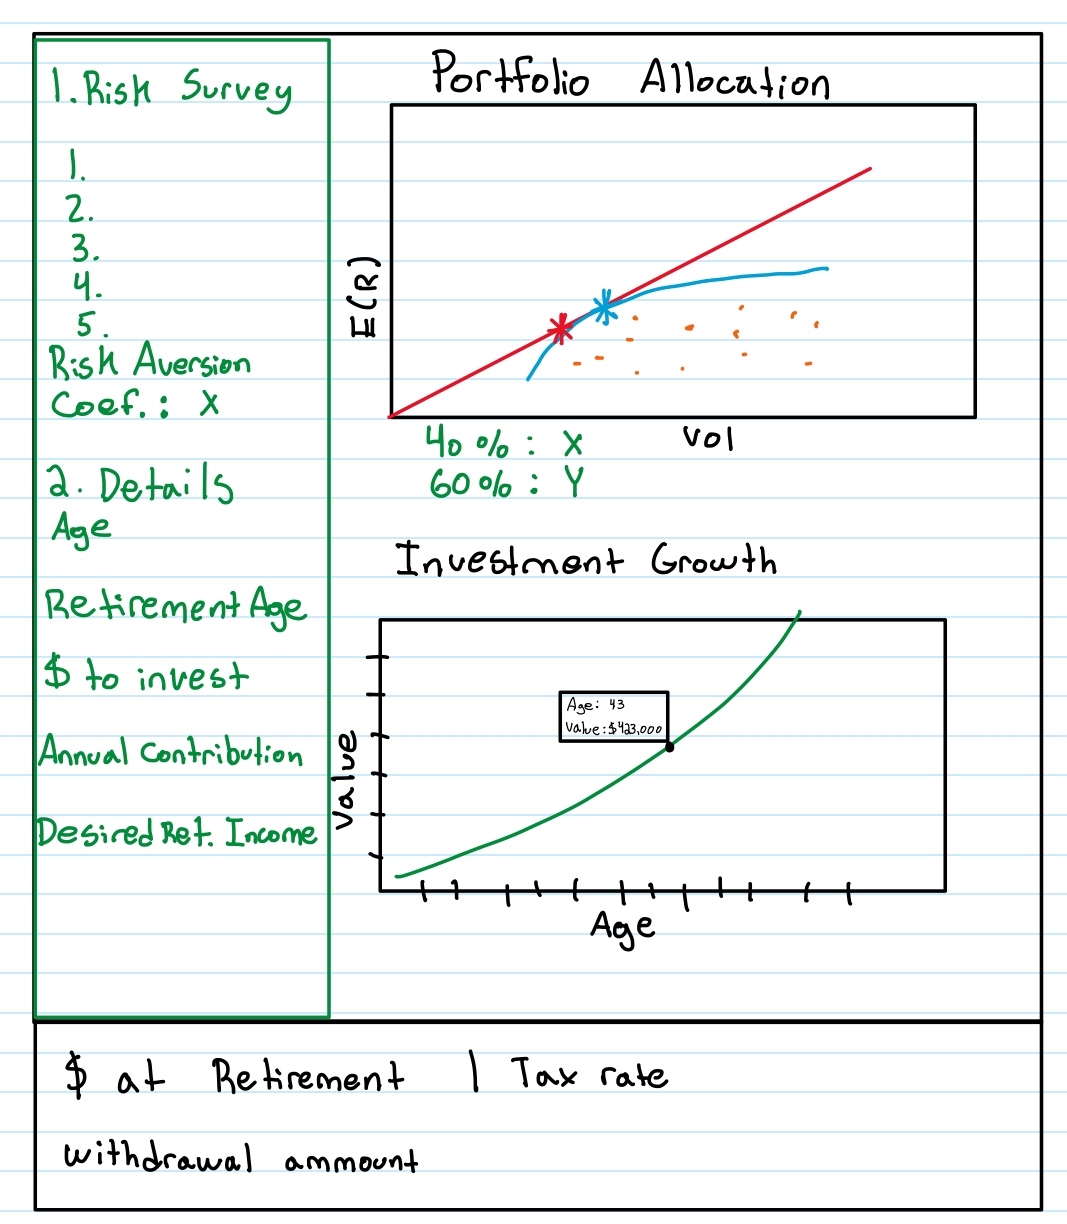 1. Risk Survey
1.
2.
3.
4.
5.
Risk Aversion
Coef.: X
2. Details
Age
Retirement Age
$ to invest
Annual Contribution
Desired Ret. Income
Portfolio Allocation
E(R)
Vol
40%: X
60%: Y
Investment Growth
Value
Age: 43
Value: $423,000
Age
$ at Retirement | Tax rate
withdrawal ammount